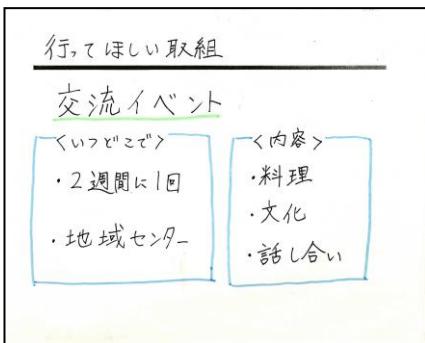 行ってほしい取組
交流イベント
<いつどこで>
・2週間に1回
・地域センター
<内容>
・料理
・文化
・話し合い